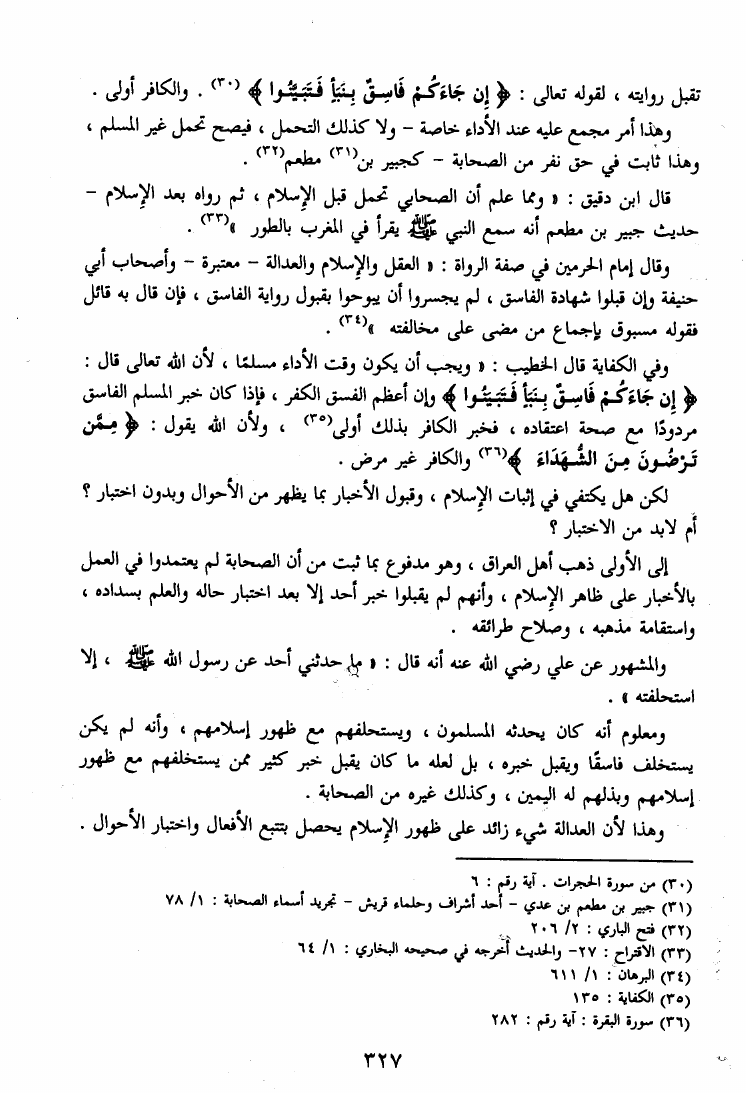 تقبل روايته ، لقوله تعالى : ﴿ إِن جَاءَكُمْ فَاسِقٌ بِنَبَأٍ فَتَبَيَّنُوا ﴾ (٣٠) . والكافر أولى .
وهذا أمر مجمع عليه عند الأداء خاصة – ولا كذلك التحمل ، فيصح تحمل غير المسلم ،
وهذا ثابت في حق نفر من الصحابة – كجبير بن(٣١) مطعم(٣٢) .
قال ابن دقيق : « ومما علم أن الصحابي تحمل قبل الإسلام ، ثم رواه بعد الإسلام –
حديث جبير بن مطعم أنه سمع النبي ﷺ يقرأ في المغرب بالطور »(٣٣) .
وقال إمام الحرمين في صفة الرواة : « العقل والإسلام والعدالة – معتبرة – وأصحاب أبي
حنيفة وإن قبلوا شهادة الفاسق ، لم يجسروا أن يبوحوا بقبول رواية الفاسق ، فإن قال به قائل
فقوله مسبوق بإجماع من مضى على مخالفته »(٣٤) .
وفي الكفاية قال الخطيب : « ويجب أن يكون وقت الأداء مسلمًا ، لأن الله تعالى قال :
﴿ إِن جَاءَكُمْ فَاسِقٌ بِنَبَأٍ فَتَبَيَّنُوا ﴾ وإن أعظم الفسق الكفر ، فإذا كان خبر المسلم الفاسق
مردودًا مع صحة اعتقاده ، فخبر الكافر بذلك أولى(٣٥) ، ولأن الله يقول : ﴿ مِمَّن
تَرْضَوْنَ مِنَ الشُّهَدَاءِ ﴾(٣٦) والكافر غير مرض .
لكن هل يكتفي في إثبات الإسلام ، وقبول الأخبار بما يظهر من الأحوال وبدون اختبار ؟
أم لابد من الاختبار ؟
إلى الأولى ذهب أهل العراق ، وهو مدفوع بما ثبت من أن الصحابة لم يعتمدوا في العمل
بالأخبار على ظاهر الإسلام ، وأنهم لم يقبلوا خبر أحد إلا بعد اختبار حاله والعلم بسداده ،
واستقامة مذهبه ، وصلاح طرائقه .
والمشهور عن علي رضي الله عنه أنه قال : « ما حدثني أحد عن رسول الله ﷺ ، إلا
استحلفته » .
ومعلوم أنه كان يحدثه المسلمون ، ويستحلفهم مع ظهور إسلامهم ، وأنه لم يكن
يستخلف فاسقًا ويقبل خبره ، بل لعله ما كان يقبل خبر كثير ممن يستخلفهم مع ظهور
إسلامهم وبذلهم له اليمين ، وكذلك غيره من الصحابة .
وهذا لأن العدالة شيء زائد على ظهور الإسلام يحصل بتتبع الأفعال واختبار الأحوال .
(٣٠) من سورة الحجرات . آية رقم : ٦
(٣١) جبير بن مطعم بن عدي – أحد أشراف وحلماء قريش – تجريد أسماء الصحابة : ١/ ٧٨
(٣٢) فتح الباري : ٢/ ٢٠٦
(٣٣) الاقتراح : ٢٧– والحديث أخرجه في صحيحه البخاري : ١/ ٦٤
(٣٤) البرهان : ١/ ٦١١
(٣٥) الكفاية : ١٣٥
(٣٦) سورة البقرة : آية رقم : ٢٨٢
٣٢٧